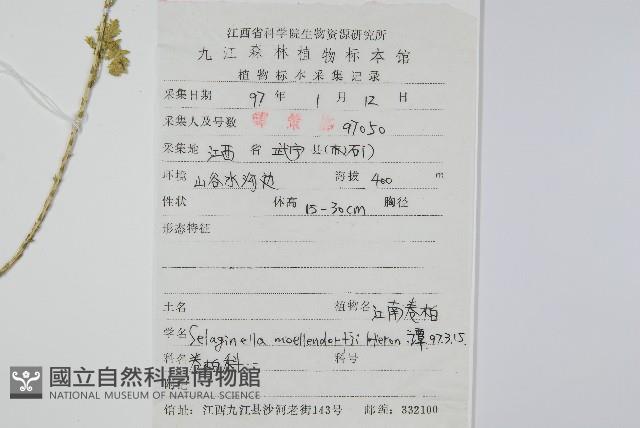 江西省科学院生物资源研究所
九江森林植物标本馆
植物标本采集记录
采集日期 97 年 1 月 12 日
采集人及号数 97050
采集地 江西 省 武宁 县(石门)
环境 山谷水沟边 海拔 400 m
性状 体高 15-30cm 胸径
形态特征
土名 植物名 江南卷柏
学名 Selaginella moellendorfii Hieron 谭 97.3.15.
科名 卷柏科 科号
附记
國立自然科學博物館
NATIONAL MUSEUM OF NATURAL SCIENCE
馆址:江西九江县沙河老街143号 邮编:332100